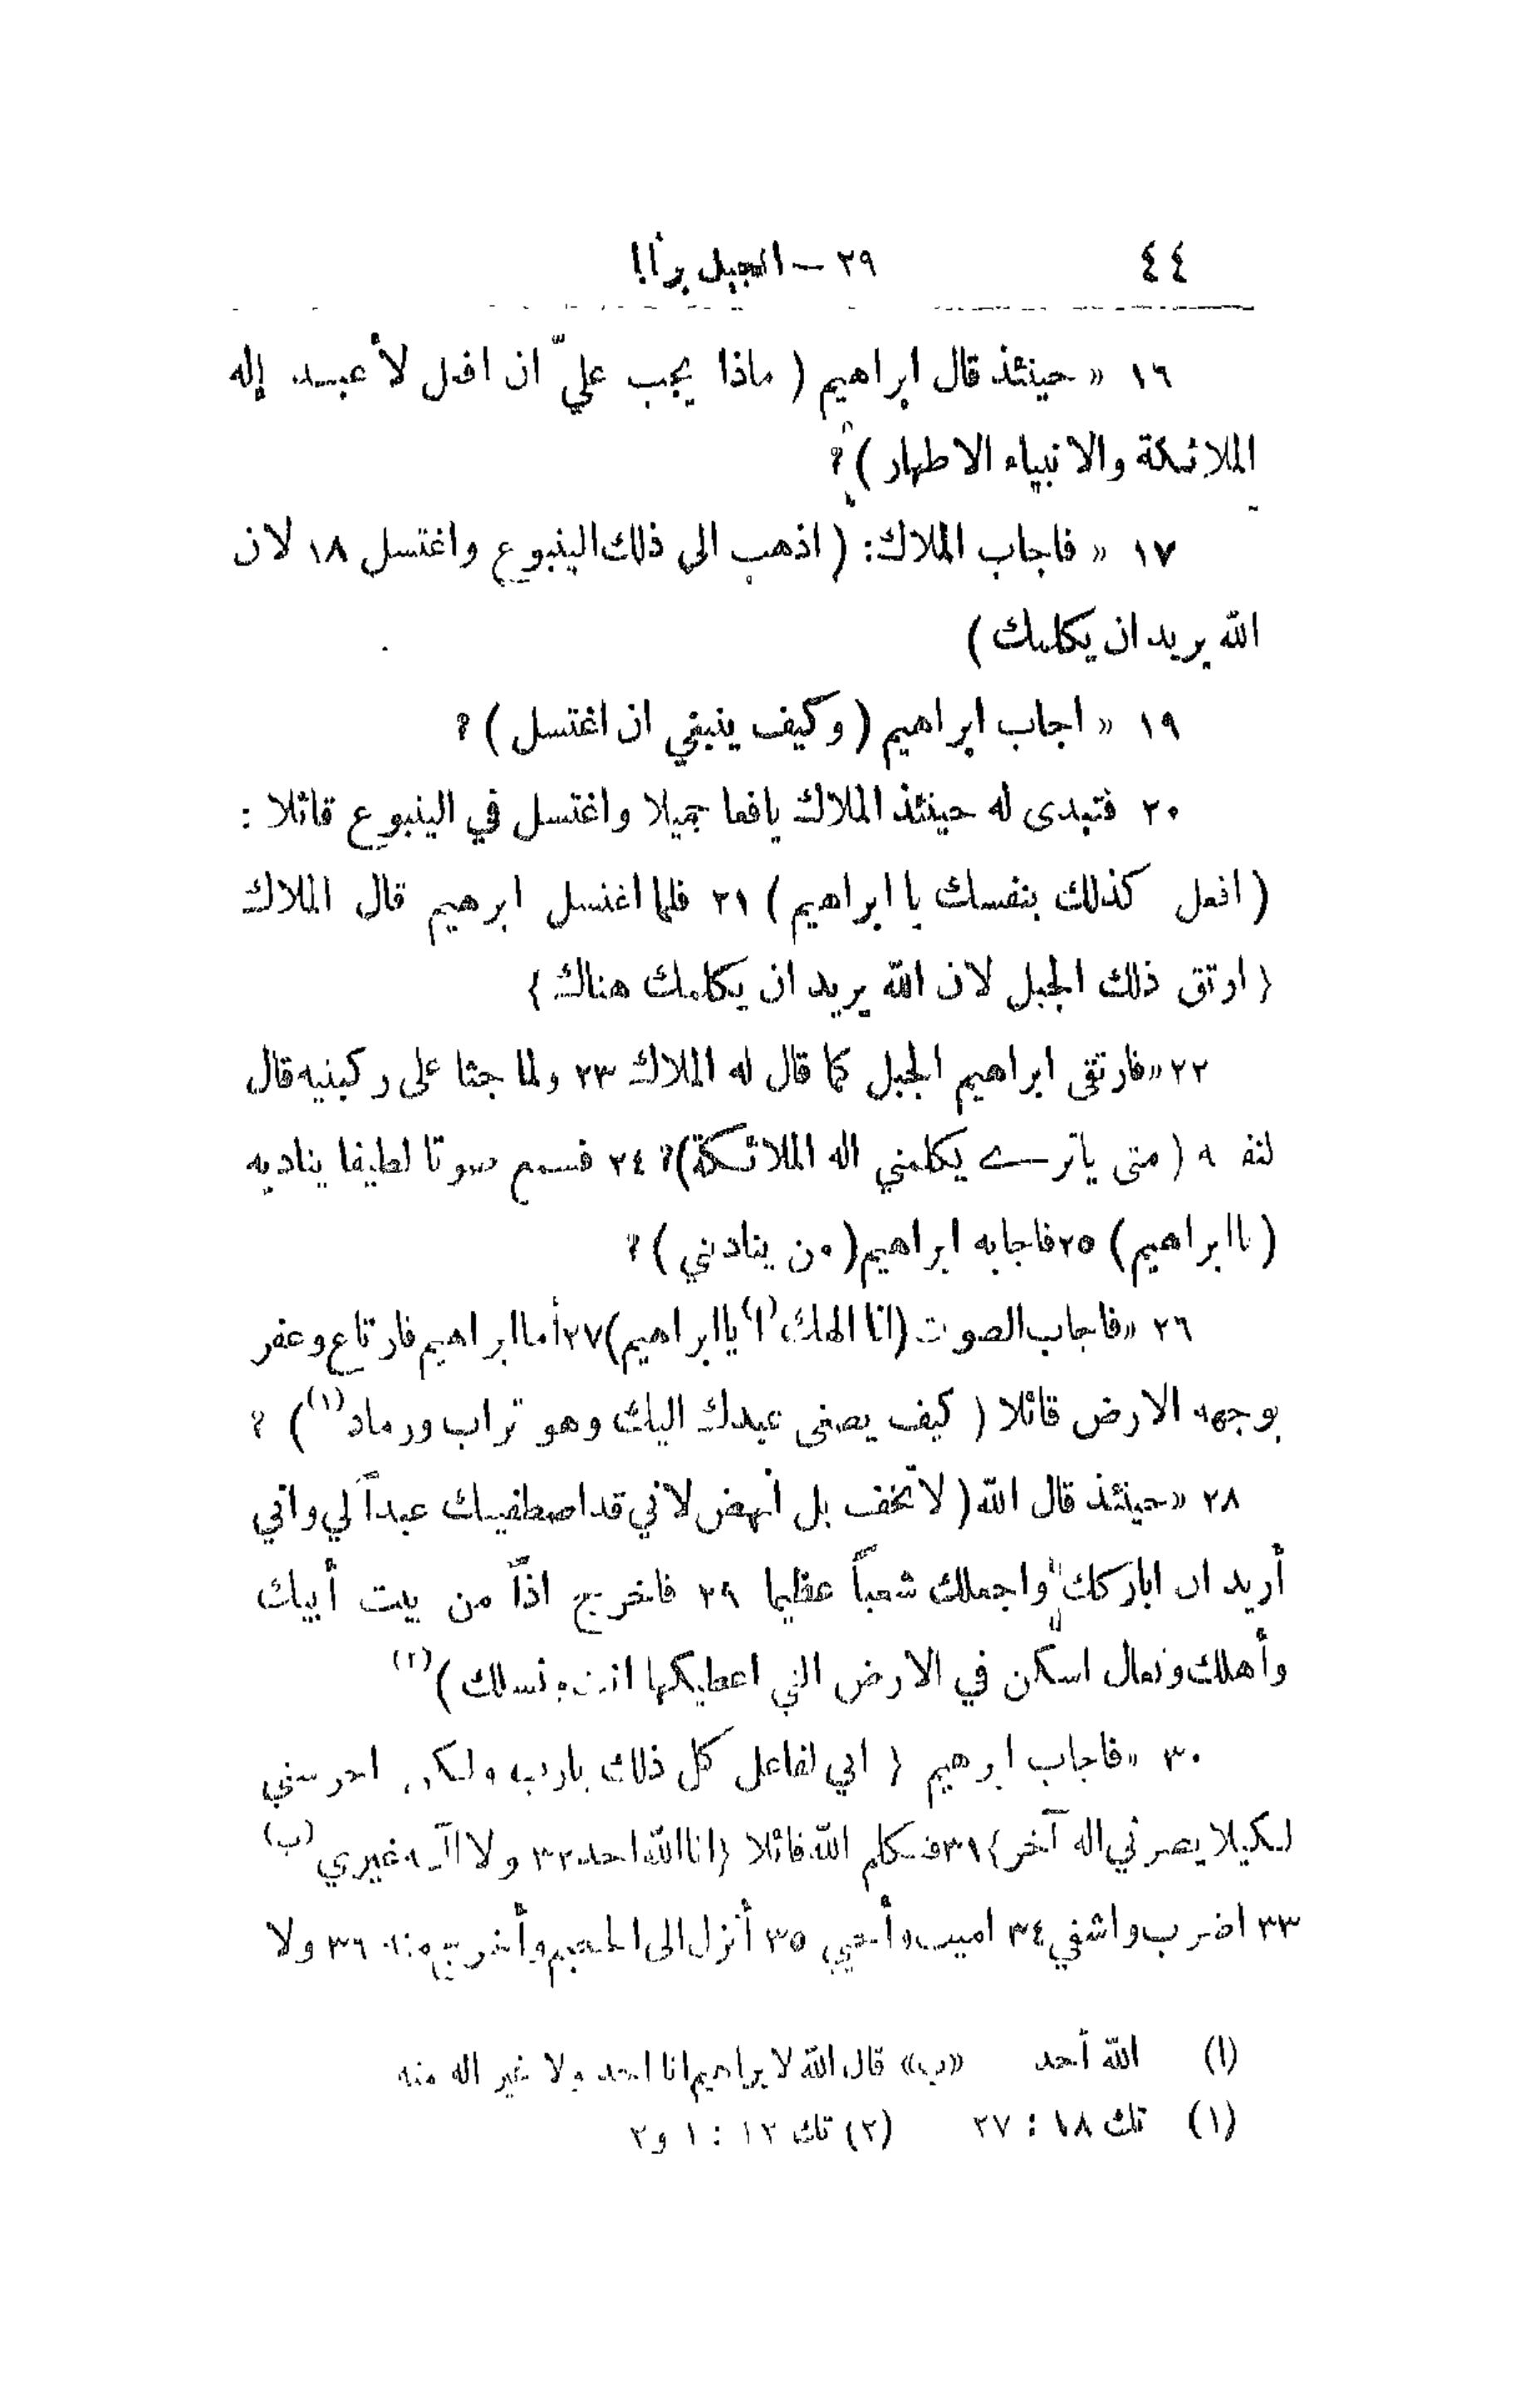 ٤٤ ٢٩ — انجيل برنابا
١٦ « حينئذ قال ابراهيم ( ماذا يجب عليّ ان افعل لأعبد إله
الملائكة والانبياء الاطهار )؟
١٧ « فاجاب الملاك: ( اذهب الى ذلك الينبوع واغتسل ١٨ لان
الله يريد ان يكلمك )
١٩ « اجاب ابراهيم ( وكيف ينبغي ان اغتسل ) ؟
٢٠ فتبدى له حينئذ الملاك يافعا جميلا واغتسل في الينبوع قائلا :
( افعل كذلك بنفسك يا ابراهيم ) ٢١ فلما اغتسل ابرهيم قال الملاك
( ارتق ذلك الجبل لان الله يريد ان يكلمك هناك )
٢٢ « فارتقى ابراهيم الجبل كما قال له الملاك ٢٣ ولما جثا على ركبتيه قال
لنفسه ( متى ياترى يكلمني اله الملائكة )؟ ٢٤ فسمع صوتا لطيفا يناديه
( يا ابراهيم ) ٢٥ فاجابه ابراهيم ( من يناديني ) ؟
٢٦ « فاجاب الصوت (انا الهك (ا) يا ابراهيم) ٢٧ أما ابراهيم فارتاع وعفر
بوجهه الارض قائلا ( كيف يصغى عبدك اليك وهو تراب ورماد (١) ) ؟
٢٨ « حينئذ قال الله ( لا تخف بل انهض لاني قد اصطفيتك عبداً لي واني
أريد ان اباركك واجعلك شعباً عظيما ٢٩ فاخرج اذاً من بيت أبيك
وأهلك وتعال اسكن في الارض التي اعطيكها انت ونسلك ) (٢)
٣٠ « فاجاب ابرهيم ( اني لفاعل كل ذلك يارب ولكن احرسني
لكيلا يضرني اله آخر ) ٣١ فتكلم الله قائلا (انا الله احد ٣٢ ولا اله غيري (ب)
٣٣ اضرب واشفي ٣٤ اميت وأحيي ٣٥ أنزل الى الجحيم وأخرج منه ٣٦ ولا
(ا) الله أحد «ب» قال الله لابراهيم انا احد ولا غير اله منه
(١) تك ١٨ : ٢٧ (٢) تك ١٢ : ١ و٢